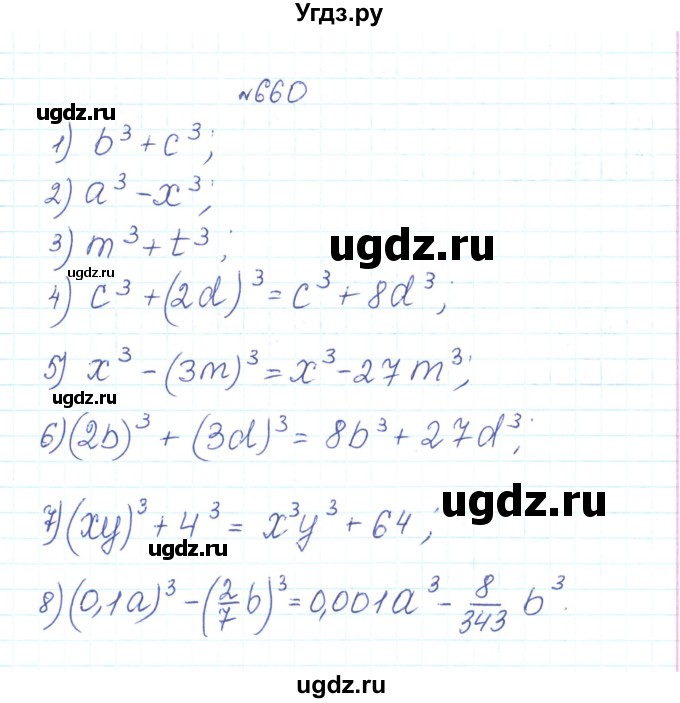 Угдз.ру
№660
ugdz.ru
1) b³ + c³;
2) a³ - x³;
3) m³ + t³;
ugdz.ru
ugdz.ru
4) c³ + (2d)³ = c³ + 8d³;
5) x³ - (3m)³ = x³ - 27m³;
ugdz.ru
6) (2b)³ + (3d)³ = 8b³ + 27d³;
ugdz.ru
7) (xy)³ + 4³ = x³y³ + 64;
ugdz.ru
8) (0,1a)³ - (2/7 b)³ = 0,001a³ - 8/343 b³.
ugdz.ru
ugdz.ru